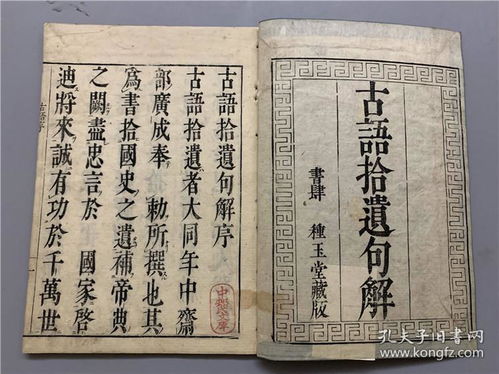 古語拾遺句解
書肆 種玉堂藏版
古語拾遺句解序
古語拾遺者大同年中齋
部廣成奉 勅所撰也其
為書拾國史之遺補帝典
之闕盡忠言於 國家啓
迪將來誠有功於千萬世
孔夫子旧书网
www.kongfz.com